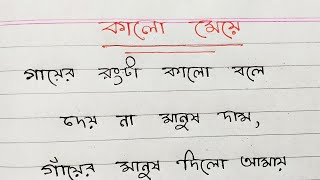 কালো মেয়ে
গায়ের রংটা কালো বলে
দেয় না মানুষ দাম,
গাঁয়ের মানুষ দিলো আমায়